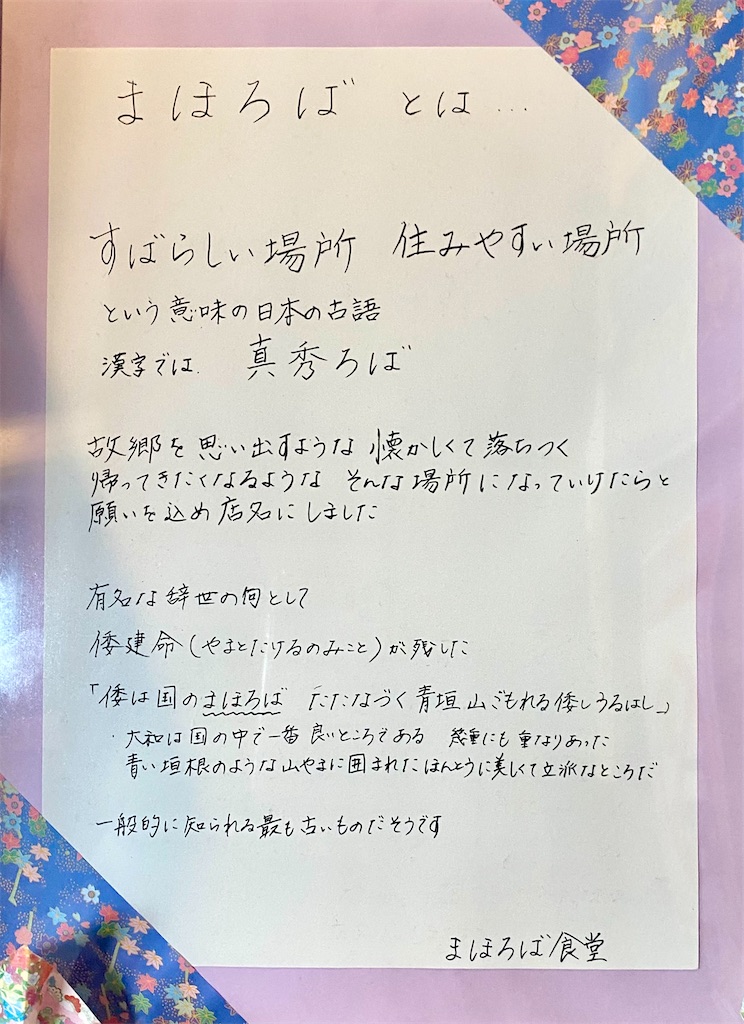 まほろば とは…
すばらしい場所 住みやすい場所
という意味の日本の古語
漢字では. 真秀ろば
故郷を思い出すような 懐かしくて落ちつく
帰ってきたくなるような そんな場所になっていけたらと
願いを込め店名にしました
有名な辞世の句として
倭建命(やまとたけるのみこと)が残した
「倭は国のまほろば たたなづく青垣山ごもれる倭しうるはし」
・大和は国の中で一番良いところである 幾重にも重なりあった
青い垣根のような山やまに囲まれたほんとうに美しくて立派なところだ
一般的に知られる最も古いものだそうです
まほろば食堂